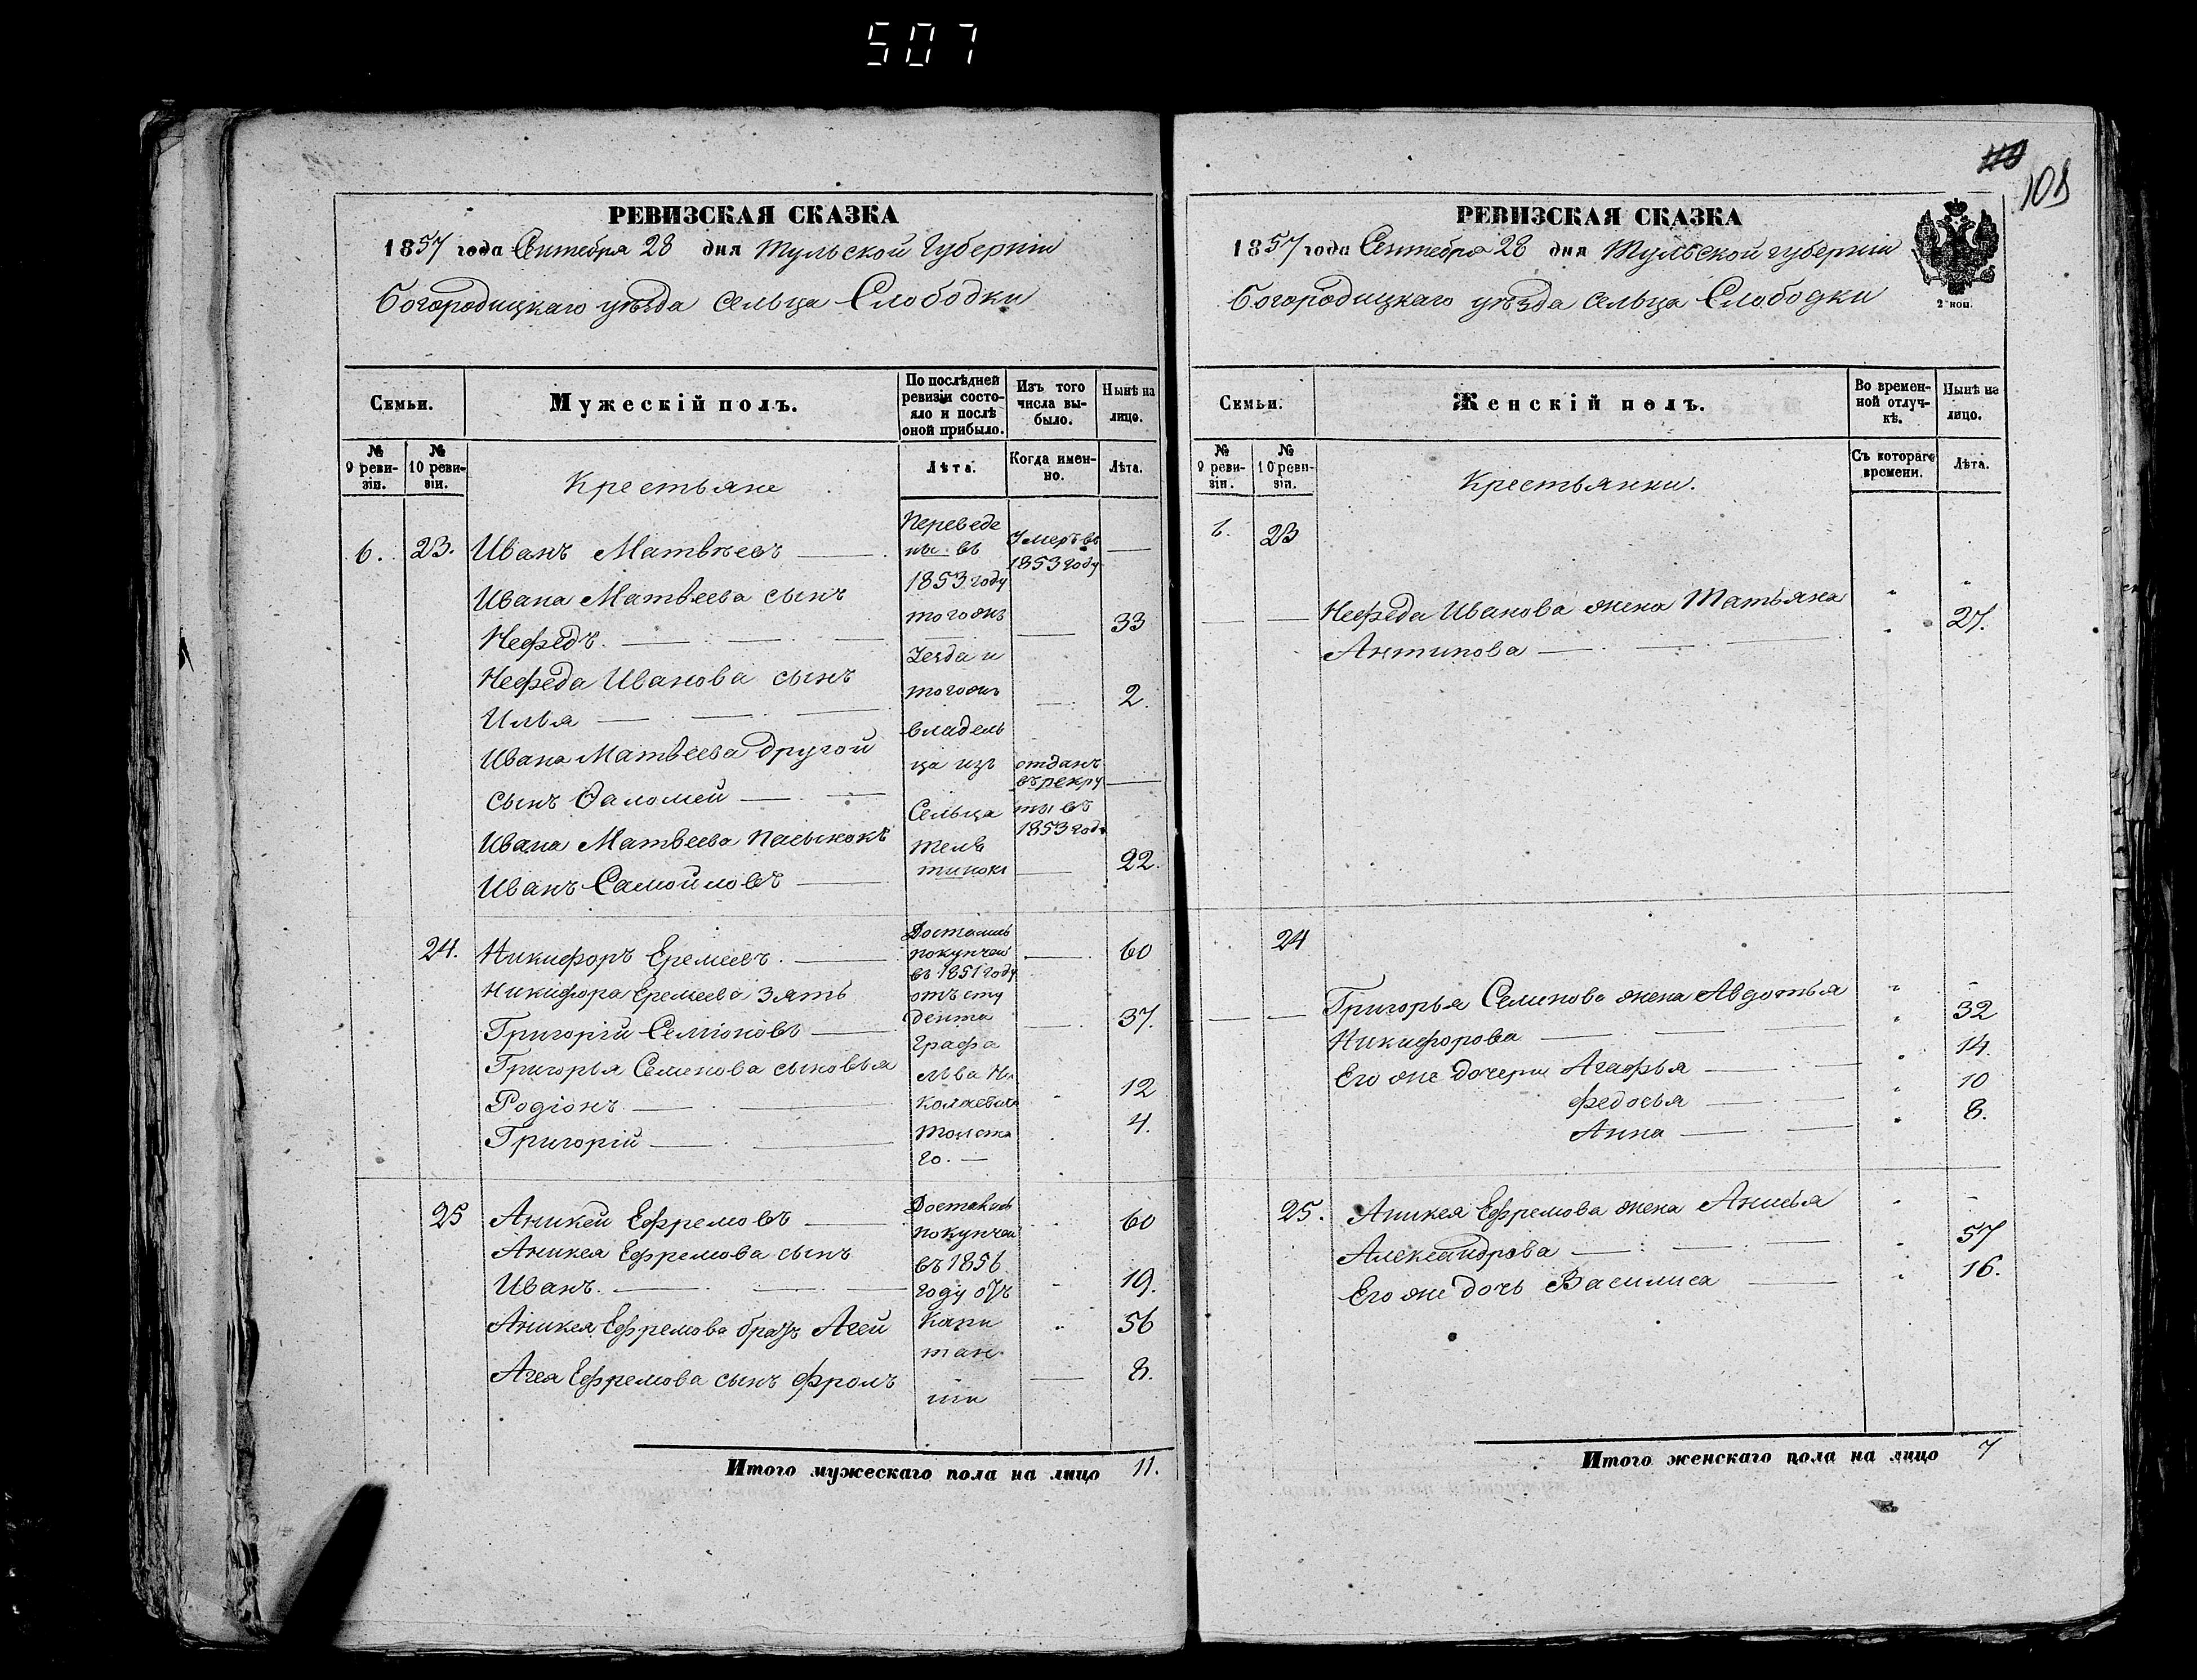 507
РЕВИЗСКАЯ СКАЗКА
1857 года Сентября 28 дня Тульской Губерніи
Богородицкаго уѣзда сельца Слободки
Семьи.
Мужескій полъ.
По послѣдней ревизіи состояло и послѣ оной прибыло.
Изъ того числа выбыло.
Нынѣ на лицо.
№ 9 ревизіи.
№ 10 ревизіи.
Крестьяне
Лѣта.
Когда именно.
Лѣта.
6. 23. Иванъ Матвѣевъ
Переведены въ 1853 году тогожъ уезда и тогожъ владельца изъ Сельца
Умеръ въ 1853 году
Ивана Матвеева сынъ
Нефедъ. 33
Нефеда Иванова сынъ
Илья 2.
Ивана Матвеева другой
сынъ Фаломей
отданъ въ рекруты въ 1853 году
Ивана Матвеева пасынокъ
Иванъ Самойловъ 22.
24. Никифоръ Еремеевъ. 60
Достались покупкой въ 1851 году отъ студента Графа Льва Николаевича Толстаго.
Никифора Еремеева зять
Григорій Семіоновъ 37.
Григорья Семенова сыновья
Родіонъ 12
Григорій 4.
25 Аникей Ефремовъ 60
Достались покупкой въ 1856 году отъ
Аникея Ефремова сынъ
Иванъ. 19.
Аникея Ефремова братъ Агей 56
Агея Ефремова сынъ Фролъ 8.
Итого мужескаго пола на лицо 11.
110
108
РЕВИЗСКАЯ СКАЗКА
1857 года Сентября 28 дня Тульской губерніи
Богородицкаго уѣзда сельца Слободки
2 коп.
Семьи.
Женскій полъ.
Во временной отлучкѣ.
Нынѣ на лицо.
№ 9 ревизіи.
№ 10 ревизіи.
Крестьянки.
Съ котораго времени.
Лѣта.
6. 23
Нефеда Иванова жена Татьяна
Антипова 27.
24
Григорья Семенова жена Авдотья
Никифорова 32
Его же дочери Агафья 14.
Федосья 10
Анна 8.
25. Аникея Ефремова жена Анисья
Александрова 57
Его же дочь Василиса 16.
Итого женскаго пола на лицо 7